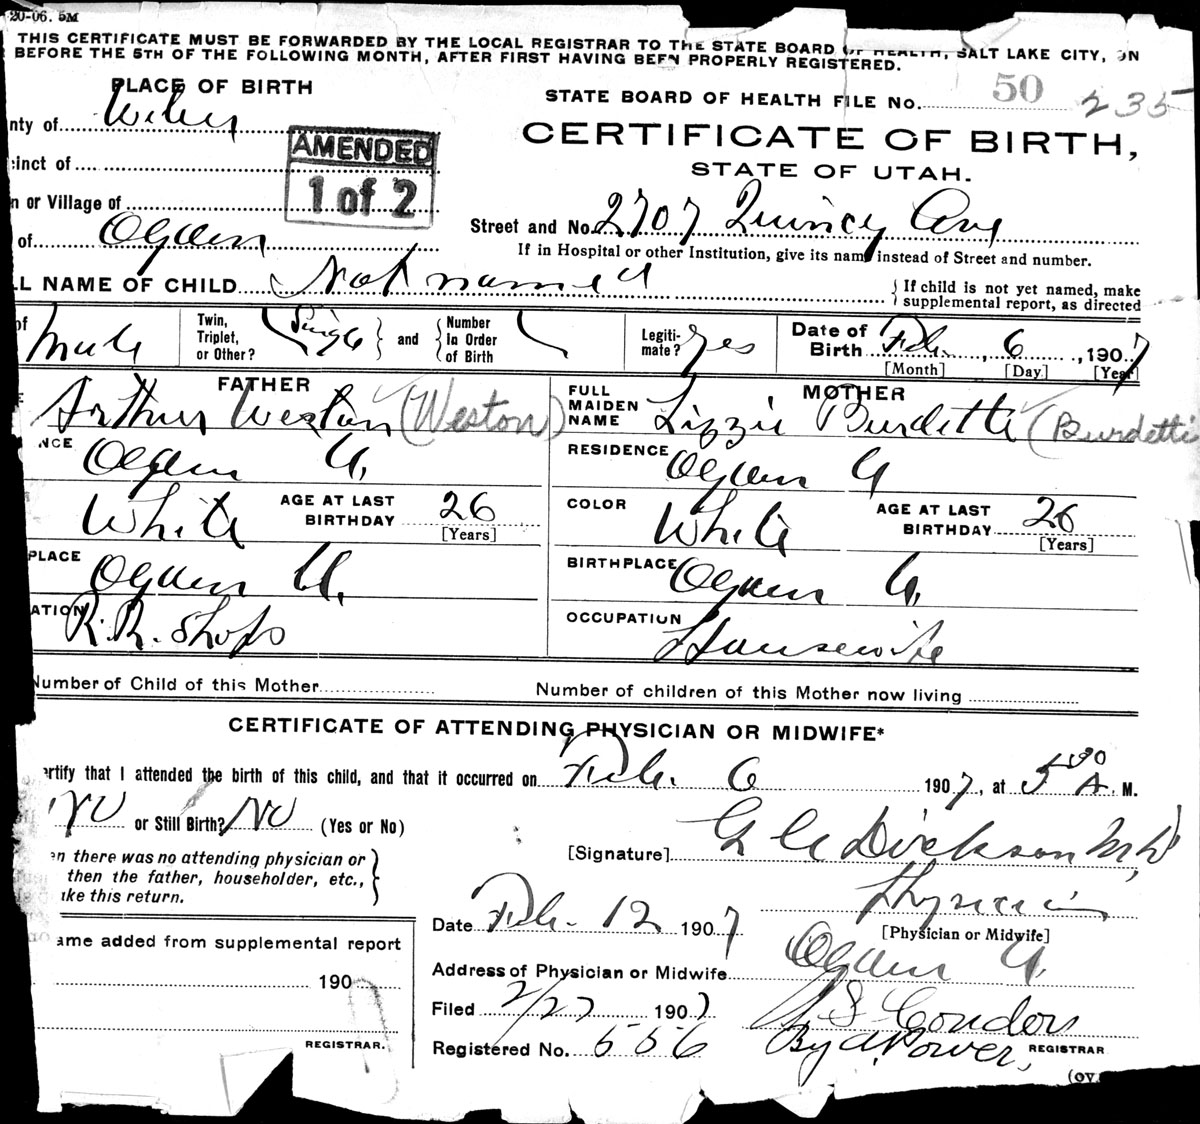 20-06. 5M
THIS CERTIFICATE MUST BE FORWARDED BY THE LOCAL REGISTRAR TO THE STATE BOARD OF HEALTH, SALT LAKE CITY, ON
BEFORE THE 5TH OF THE FOLLOWING MONTH, AFTER FIRST HAVING BEEN PROPERLY REGISTERED.
PLACE OF BIRTH
STATE BOARD OF HEALTH FILE No. 50 235
nty of Weber
CERTIFICATE OF BIRTH,
AMENDED
1 of 2
STATE OF UTAH.
cinct of
n or Village of
Street and No. 2707 Quincy Ave
of Ogden
If in Hospital or other Institution, give its name instead of Street and number.
LL NAME OF CHILD Not named
If child is not yet named, make
supplemental report, as directed
of Male
Twin,
Triplet,
or Other? Single and
Number
In Order
of Birth
Legiti-
mate? Yes
Date of
Birth Feb. 6, 1907
[Month] [Day] [Year]
FATHER
Arthur Weston (Weston)
MOTHER
FULL
MAIDEN
NAME Lizzie Burdette (Burdette
NCE Ogden U.
RESIDENCE Ogden U
White
AGE AT LAST
BIRTHDAY 26
[Years]
COLOR White
AGE AT LAST
BIRTHDAY 26
[Years]
PLACE Ogden U.
BIRTHPLACE Ogden U.
ATION R.R. Shops
OCCUPATION Housewife
Number of Child of this Mother
Number of children of this Mother now living
CERTIFICATE OF ATTENDING PHYSICIAN OR MIDWIFE*
ertify that I attended the birth of this child, and that it occurred on Feb. 6 1907, at 5 30 A. M.
or Still Birth? No (Yes or No)
[Signature] Dickson M.D.
en there was no attending physician or
then the father, householder, etc.,
ake this return.
Physician
[Physician or Midwife]
Date Feb. 12 1907
ame added from supplemental report
190
REGISTRAR.
Address of Physician or Midwife Ogden U.
Filed 2/27 1907
Registered No. 556
By A. Power, REGISTRAR
(OV